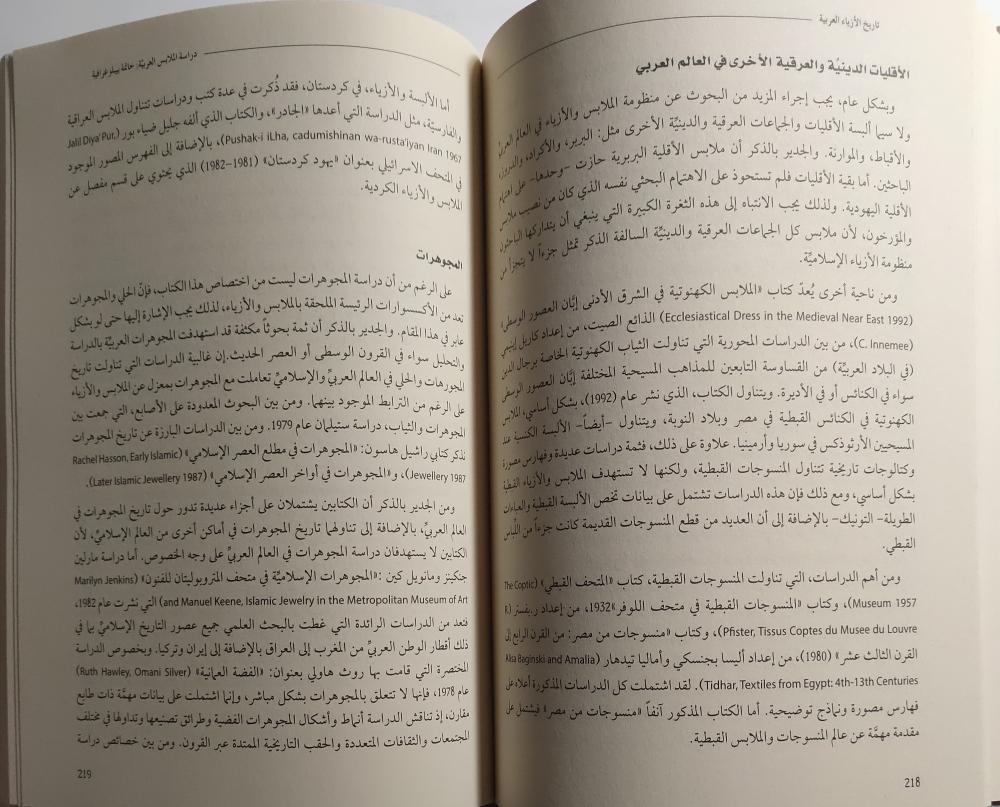 تاريخ الأزياء العربية
الأقليات الدينيَّة والعرقية الأخرى في العالم العربي
وبشكل عام، يجب إجراء المزيد من البحوث عن منظومة الملابس والأزياء في العالم العربيِّ
ولا سيما ألبسة الأقليات والجماعات العرقية والدينيَّة الأخرى مثل: البربر، والأكراد، والدروز،
والأقباط، والموارنة. والجدير بالذكر أن ملابس الأقلية البربرية حازت -وحدها- على اهتمام
الباحثين. أما بقية الأقليات فلم تستحوذ على الاهتمام البحثي نفسه الذي كان من نصيب ملابس
الأقلية اليهودية. ولذلك يجب الانتباه إلى هذه الثغرة الكبيرة التي ينبغي أن يتداركها الباحثون
والمؤرخون، لأن ملابس كل الجماعات العرقية والدينيَّة السالفة الذكر تمثل جزءاً لا يتجزأ من
منظومة الأزياء الإسلاميَّة.
ومن ناحية أخرى يُعدّ كتاب «الملابس الكهنوتية في الشرق الأدنى إبَّان العصور الوسطى»
(Ecclesiastical Dress in the Medieval Near East 1992) الذائع الصيت، من إعداد كاريل إينيمي
(C. Innemee)، من بين الدراسات المحورية التي تناولت الثياب الكهنوتية الخاصة برجال الدين
(في البلاد العربيَّة) من القساوسة التابعين للمذاهب المسيحية المختلفة إبَّان العصور الوسطى
سواء في الكنائس أو في الأديرة. ويتناول الكتاب، الذي نشر عام (1992)، بشكل أساسي، الملابس
الكهنوتية في الكنائس القبطية في مصر وبلاد النوبة، ويتناول -أيضاً- الألبسة الكنسية عند
المسيحيين الأرثوذكس في سوريا وأرمينيا. علاوة على ذلك، فثمة دراسات عديدة وفهارس مصورة
وكتالوجات تاريخية تتناول المنسوجات القبطية، ولكنها لا تستهدف الملابس والأزياء القبطية
بشكل أساسي، ومع ذلك فإن هذه الدراسات تشتمل على بيانات تخص الألبسة القبطية والعباءات
الطويلة- التونيك- بالإضافة إلى أن العديد من قطع المنسوجات القديمة كانت جزءاً من اللّباس
القبطي.
ومن أهم الدراسات، التي تناولت المنسوجات القبطية، كتاب «المتحف القبطي» (The Coptic
Museum 1957)، وكتاب «المنسوجات القبطية في متحف اللوفر»1932، من إعداد ر.بفستر (R.
Pfister, Tissus Coptes du Musee du Louvre)، وكتاب «منسوجات من مصر: من القرن الرابع إلى
القرن الثالث عشر» (1980)، من إعداد أليسا بجنسكي وأماليا تيدهار (Alisa Baginski and Amalia
Tidhar, Textiles from Egypt: 4th-13th Centuries). لقد اشتملت كل الدراسات المذكورة أعلاه على
فهارس مصورة ونماذج توضيحية. أما الكتاب المذكور آنفاً «منسوجات من مصر» فيشتمل على
مقدمة مهمَّة عن عالم المنسوجات والملابس القبطية.
218
دراسة الملابس العربيَّة: خاتمة ببليوغرافية
أما الألبسة والأزياء، في كردستان، فقد ذُكرت في عدة كتب ودراسات تتناول الملابس العراقية
والفارسيَّة، مثل الدراسة التي أعدها «الجادر»، والكتاب الذي ألفه جليل ضياء بور (Jalil Diya'Pur,
Pushak-i iLha, cadumishinan wa-rusta'iyan Iran 1967)، بالإضافة إلى الفهرس المصور الموجود
في المتحف الاسرائيلي بعنوان «يهود كردستان» (1981-1982) الذي يحتوي على قسم مفصل عن
الملابس والأزياء الكردية.
المجوهرات
على الرغم من أن دراسة المجوهرات ليست من اختصاص هذا الكتاب، فإنّ الحلي والمجوهرات
تعد من الأكسسوارات الرئيسة الملحقة بالملابس والأزياء، لذلك يجب الإشارة إليها حتى لو بشكل
عابر في هذا المقام. والجدير بالذكر أن ثمة بحوثاً مكثفة قد استهدفت المجوهرات العربيَّة بالدراسة
والتحليل سواء في القرون الوسطى أو العصر الحديث.إن غالبية الدراسات التي تناولت تاريخ
المجوهرات والحلي في العالم العربيِّ والإسلاميِّ تعاملت مع المجوهرات بمعزل عن الملابس والأزياء
على الرغم من الترابط الموجود بينهما. ومن بين البحوث المعدودة على الأصابع، التي جمعت بين
المجوهرات والثياب، دراسة ستيلمان عام 1979. ومن بين الدراسات البارزة عن تاريخ المجوهرات
نذكر كتابي راشيل هاسون: «المجوهرات في مطلع العصر الإسلامي» (Rachel Hasson, Early Islamic
Jewellery 1987)، و«المجوهرات في أواخر العصر الإسلامي» (Later Islamic Jewellery 1987).
ومن الجدير بالذكر أن الكتابين يشتملان على أجزاء عديدة تدور حول تاريخ المجوهرات في
العالم العربيِّ، بالإضافة إلى تناولهما تاريخ المجوهرات في أماكن أخرى من العالم الإسلاميِّ، لأن
الكتابين لا يستهدفان دراسة المجوهرات في العالم العربيِّ على وجه الخصوص. أما دراسة مارلين
جنكينز ومانويل كين :«المجوهرات الإسلاميَّة في متحف المتروبوليتان للفنون» (Marilyn Jenkins
and Manuel Keene, Islamic Jewelry in the Metropolitan Museum of Art) التي نشرت عام 1982،
فتعد من الدراسات الرائدة التي غطت بالبحث العلمي جميع عصور التاريخ الإسلاميِّ بما في
ذلك أقطار الوطن العربيِّ من المغرب إلى العراق بالإضافة إلى إيران وتركيا. وبخصوص الدراسة
المختصرة التي قامت بها روث هاولي بعنوان: «الفضة العمانية» (Ruth Hawley, Omani Silver)
عام 1978، فإنها لا تتعلق بالمجوهرات بشكل مباشر، وإنما اشتملت على بيانات مهمَّة ذات طابع
مقارن، إذ تناقش الدراسة أنماط وأشكال المجوهرات الفضية وطرائق تصنيعها وتداولها في مختلف
المجتمعات والثقافات المتعددة والحقب التاريخية الممتدة عبر القرون. ومن بين خصائص دراسة
219